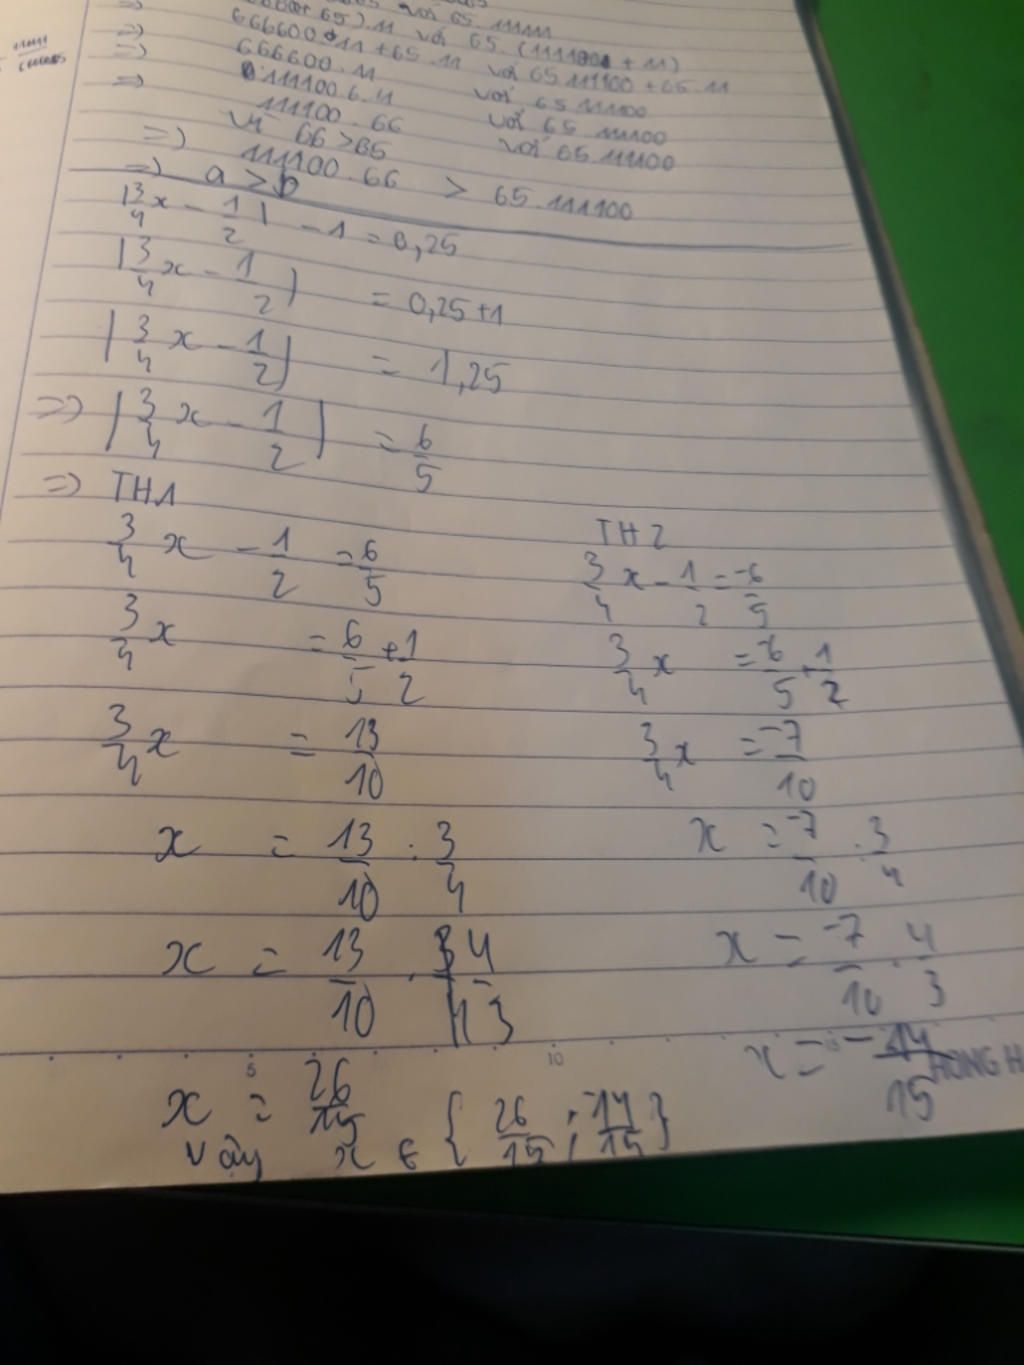 666600.11 + 65.11 với 65.111100 + 65.11
666600.11 với 65.111100
111100.6.11 với 65.111100
111100.66 với 65.111100
Vì 66 > 65
=> 111100.66 > 65.111100
=> a > b
|3/4 x - 1/2| - 1 = 0,25
|3/4 x - 1/2| = 0,25 + 1
|3/4 x - 1/2| = 1,25
=> |3/4 x - 1/2| = 6/5
=> TH1
3/4 x - 1/2 = 6/5
3/4 x = 6/5 + 1/2
3/4 x = 13/10
x = 13/10 : 3/4
x = 13/10 . 4/3
x = 26/15
TH2
3/4 x - 1/2 = -6/5
3/4 x = -6/5 + 1/2
3/4 x = -7/10
x = -7/10 : 3/4
x = -7/10 . 4/3
x = -14/15
Vậy x ∈ {26/15 ; -14/15}
5 10 15
HONG H